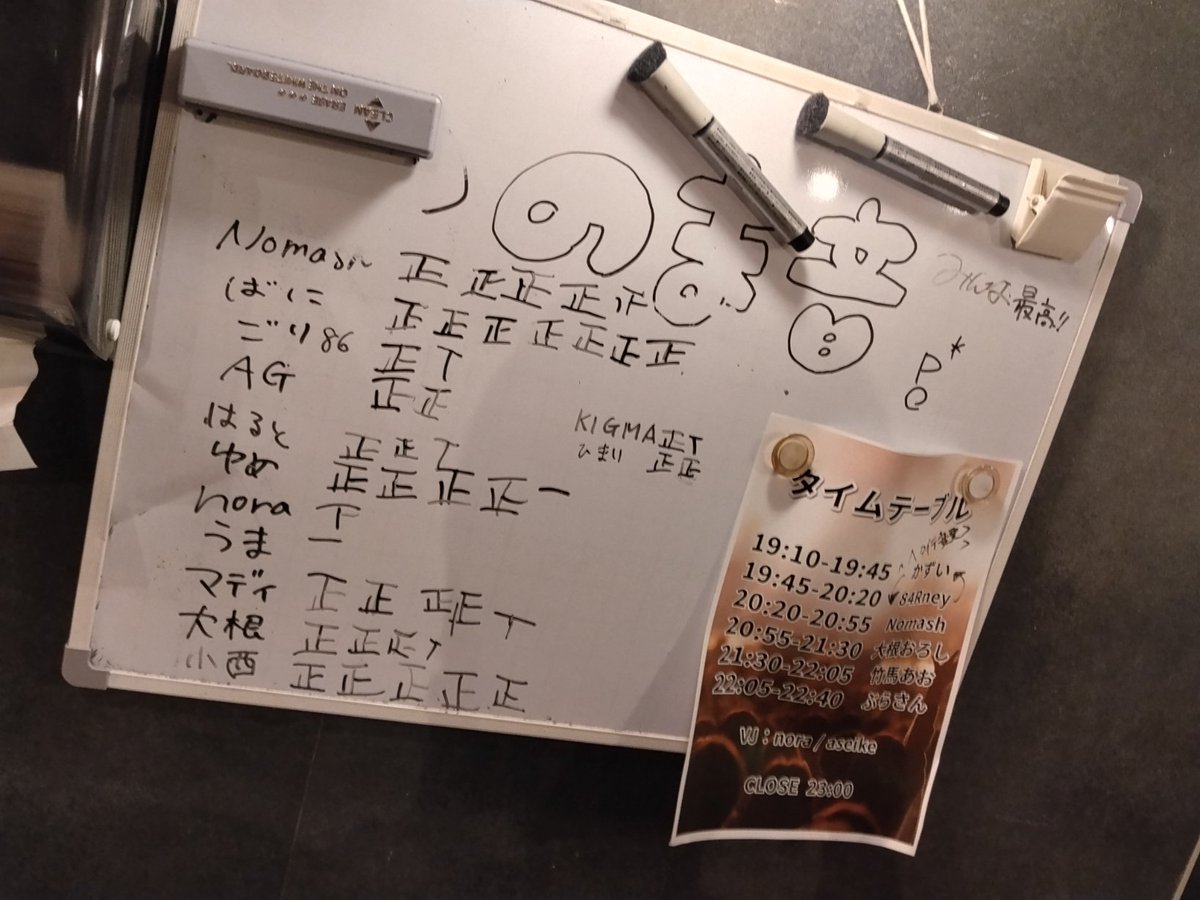 CLEAN ERASE
ON THE WHITEBOARD.
のま
みんな最高!!
P*
e
Nomash 正 正 正 正 正
ばに 正 正 正 正 正 正 正
ごり86 正 T
AG 正 正
はると 正 正 T
ゆめ 正 正 正 正 一
nora 下
うま 一
マディ 正 正 正 正 T
大根 正 正 正 T
小西 正 正 正 正 正
KIGMA 正 T
ひまり 正 正
タイムテーブル
19:10-19:45 かずい
19:45-20:20 84Rney
20:20-20:55 Nomash
20:55-21:30 大根おろし
21:30-22:05 竹馬あお
22:05-22:40 ぷらさん
VJ : nora / aseike
CLOSE 23:00